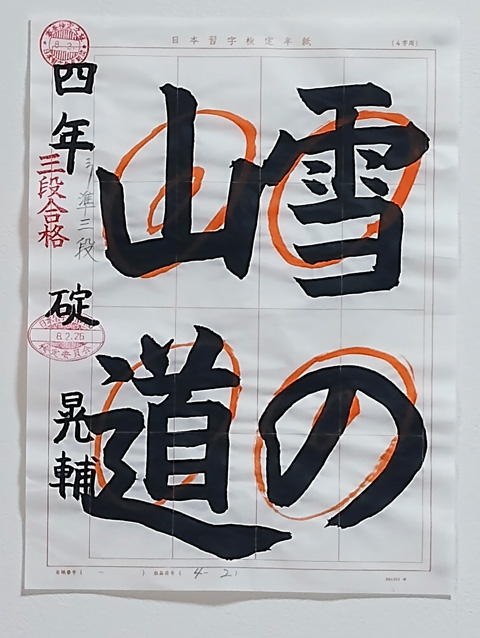 日本習字検定半紙
(4字用)
雪の
山道
四年 碇 晃輔
準三段
三段合格
8.2.26
4-2